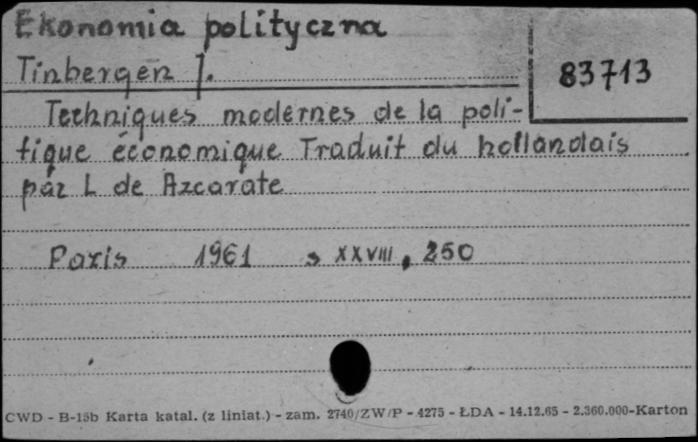 Ekonomia polityczna
Tinbergen J.
83713
Techniques modernes de la poli-
tique économique Traduit du hollandais
par L de Azcarate
Paris 1961 s XXVIII, 250
CWD - B-15b Karta katal. (z liniat.) - zam. 2740/ZW/P - 4275 - ŁDA - 14.12.65 - 2.360.000-Karton